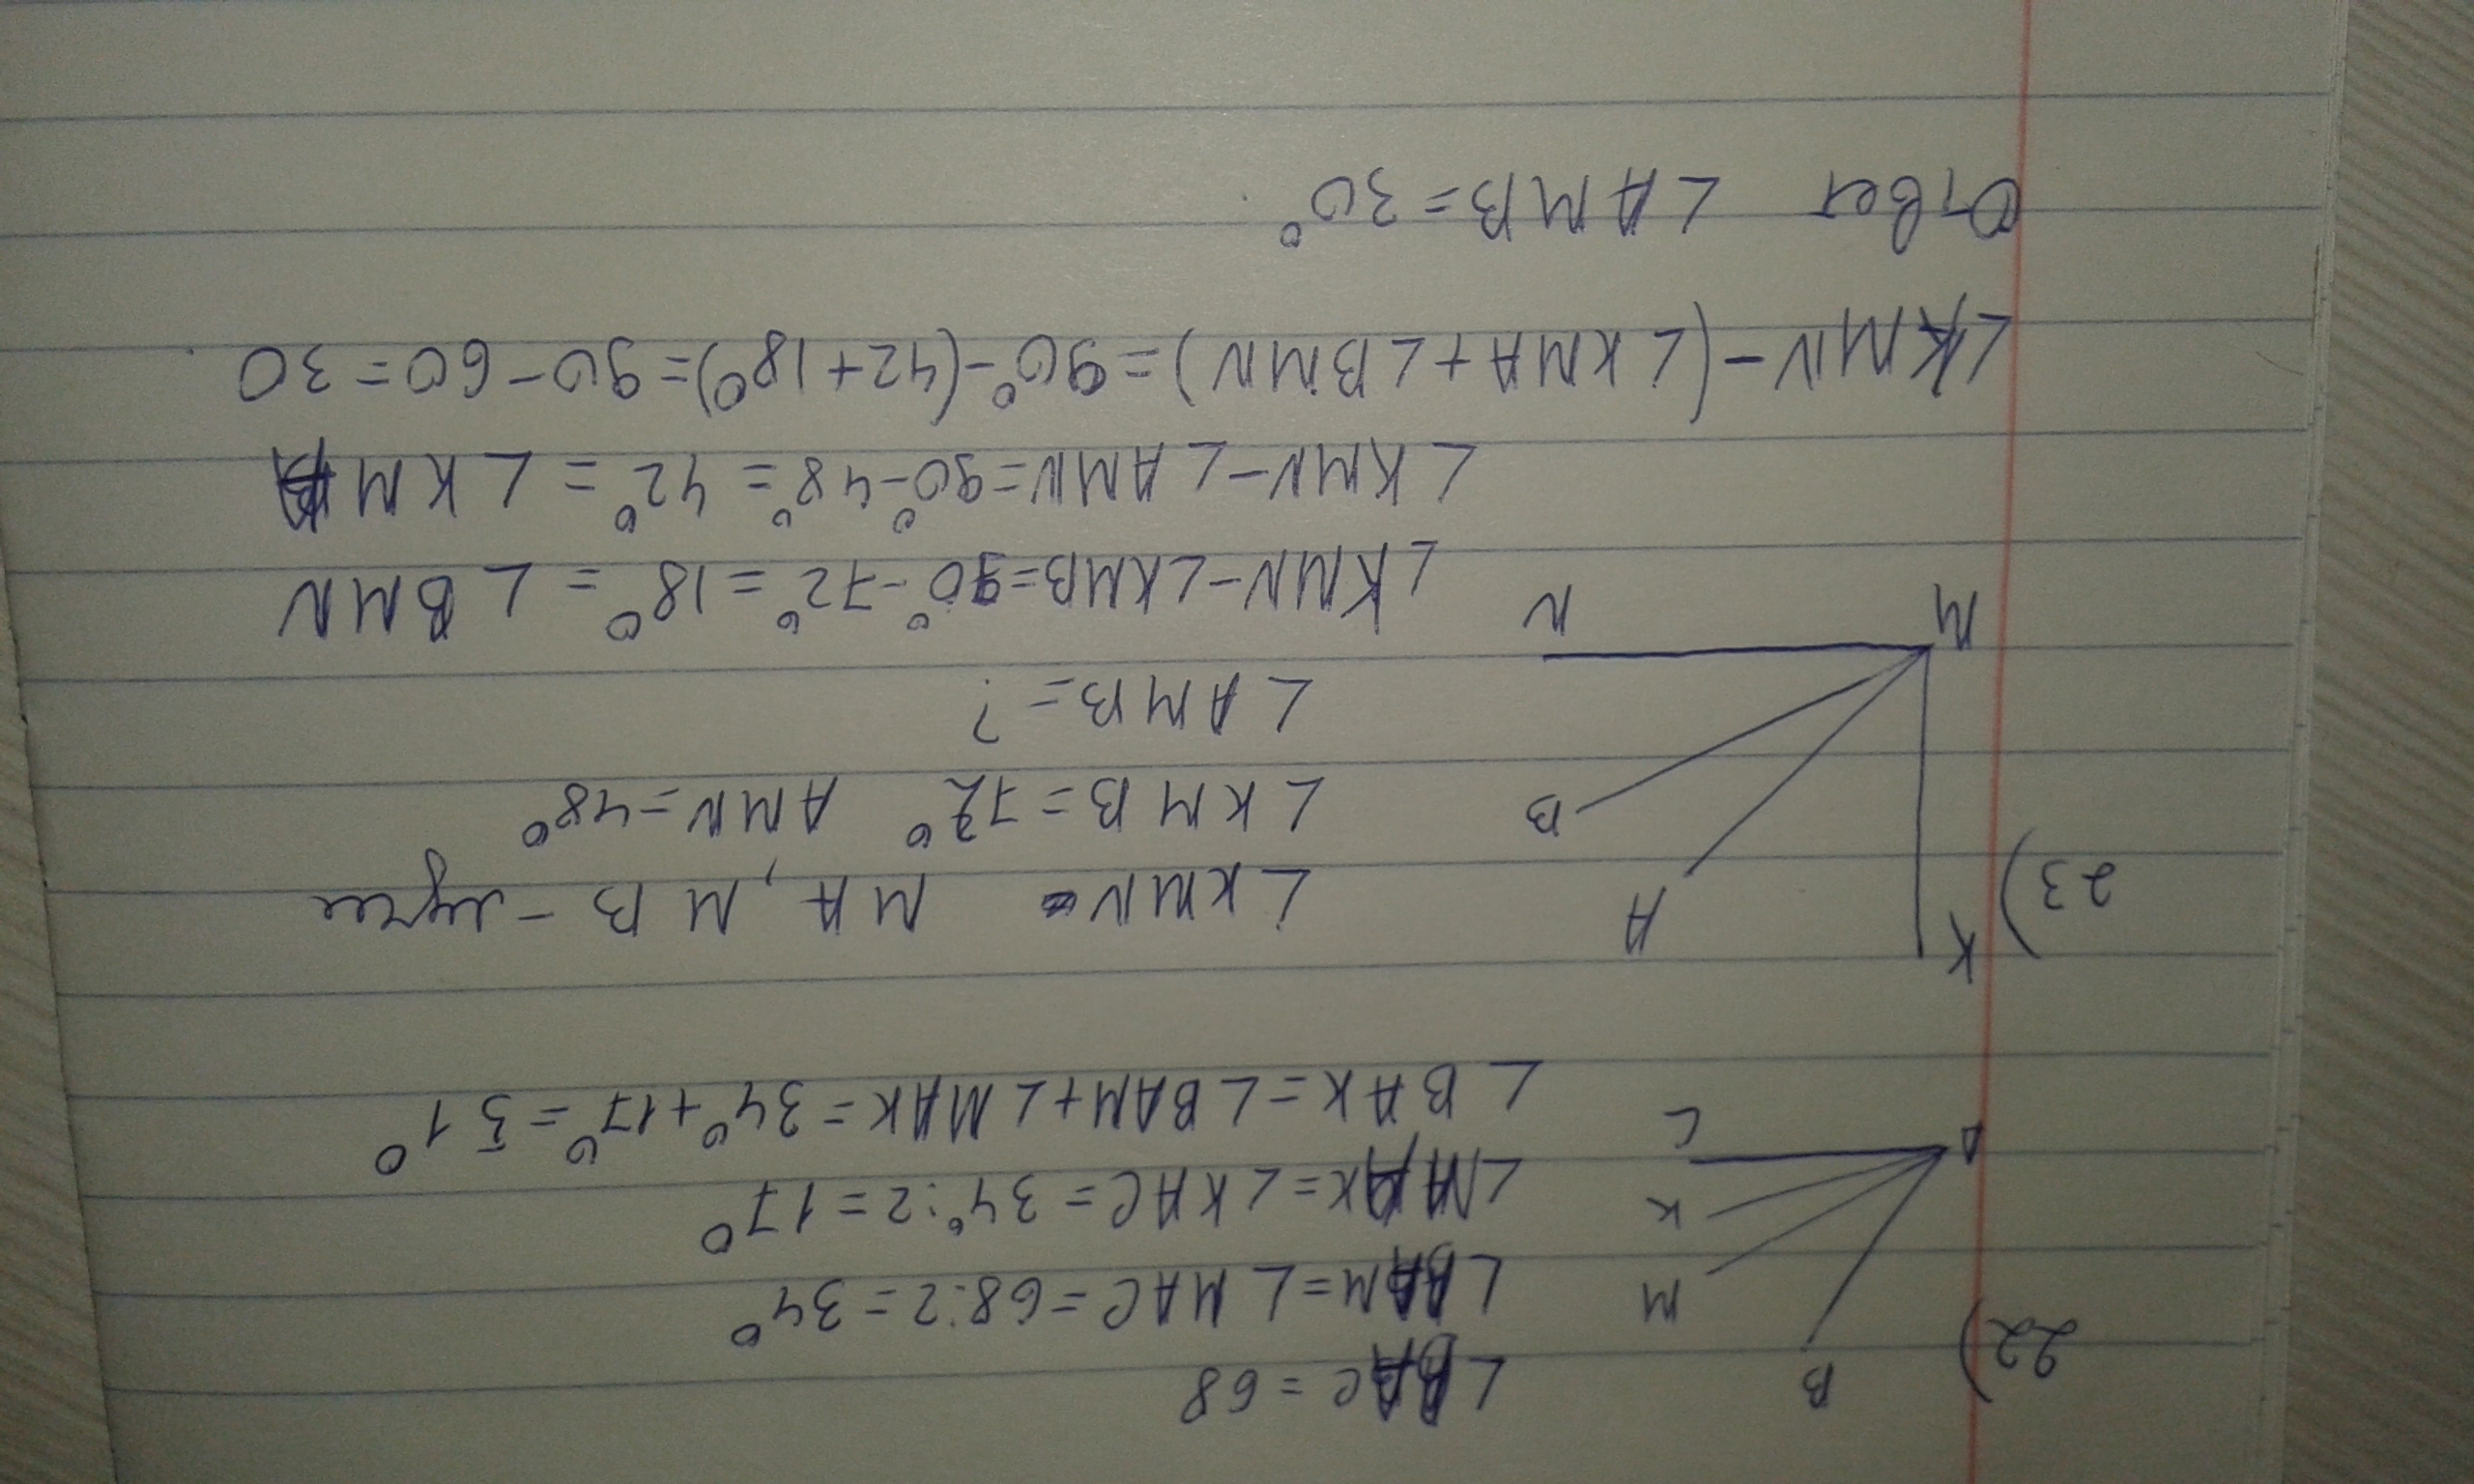 22)
B
M
K
A
C
∠BAC = 68
∠BAM = ∠MAC = 68:2 = 34°
∠MAK = ∠KAC = 34°:2 = 17°
∠BAK = ∠BAM + ∠MAK = 34° + 17° = 51°
23)
K
A
B
M
N
∠KMN MA, MB - лучи
∠KMB = 72° AMN = 48°
∠AMB = ?
∠KMN - ∠KMB = 90° - 72° = 18° = ∠BMN
∠KMN - ∠AMN = 90° - 48° = 42° = ∠KMA
∠KMN - (∠KMA + ∠BMN) = 90° - (42 + 18°) = 90 - 60 = 30
Ответ ∠AMB = 30°.